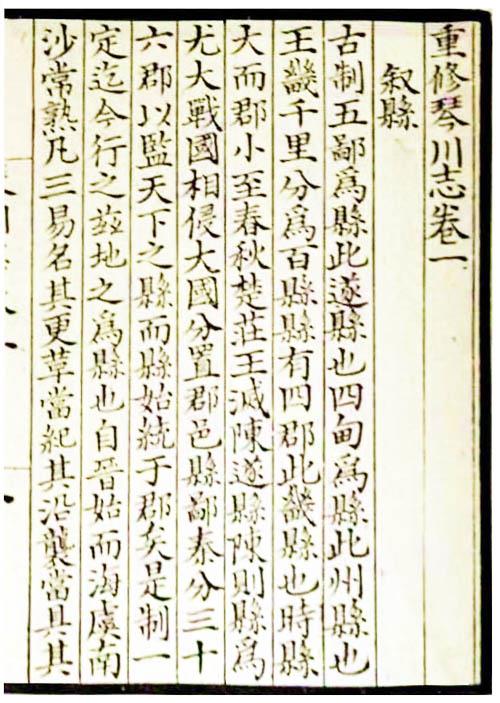 重修琴川志卷一
叙縣
古制五鄙爲縣此遂縣也四甸爲縣此州縣也
王畿千里分爲百縣縣有四郡此畿縣也時縣
大而郡小至春秋楚莊王滅陳遂縣陳則縣爲
尤大戰國相侵大國分置郡邑縣鄙秦分三十
六郡以監天下之縣而縣始統于郡矣是制一
定迄今行之茲地之爲縣也自晉始而海虞南
沙常熟凡三易名其更革當紀其沿襲當具其